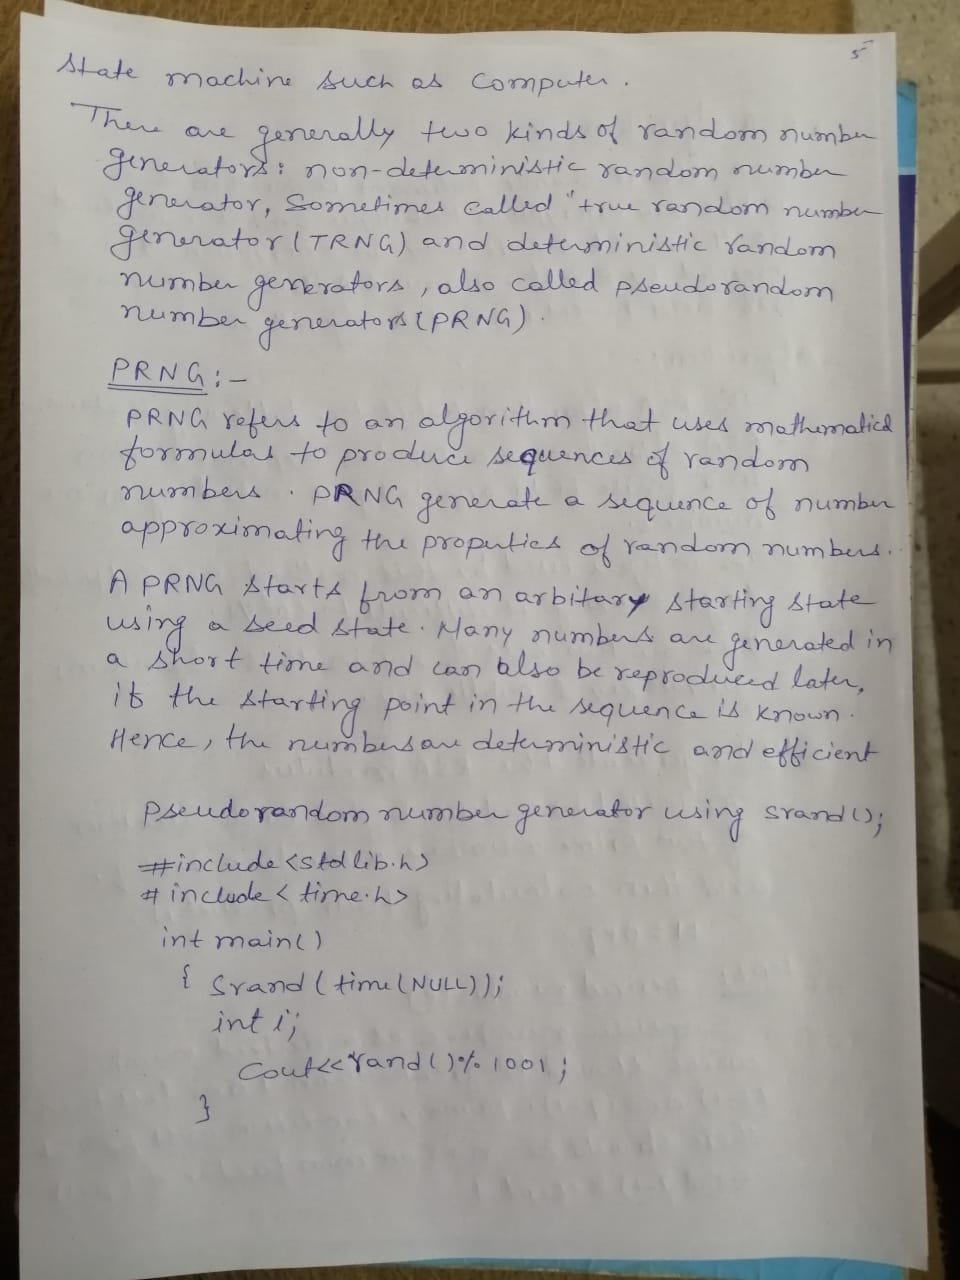 5
State machine such as computer.
There are generally two kinds of random number
generators: non-deterministic random number
generator, Sometimes called "true random number
generator (TRNG) and deterministic random
number generators, also called pseudorandom
number generators (PRNG).
PRNG:-
PRNG refers to an algorithm that uses mathematical
formulas to produce sequences of random
numbers. PRNG generate a sequence of number
approximating the properties of random numbers.
A PRNG starts from an arbitary starting state
using a seed state. Many numbers are generated in
a short time and can also be reproduced later,
if the starting point in the sequence is known.
Hence, the numbers are deterministic and efficient
Pseudorandom number generator using srand();
#include <stdlib.h>
# include < time.h>
int main()
{ Srand (time(NULL));
int i;
Cout<<rand()%1001;
}